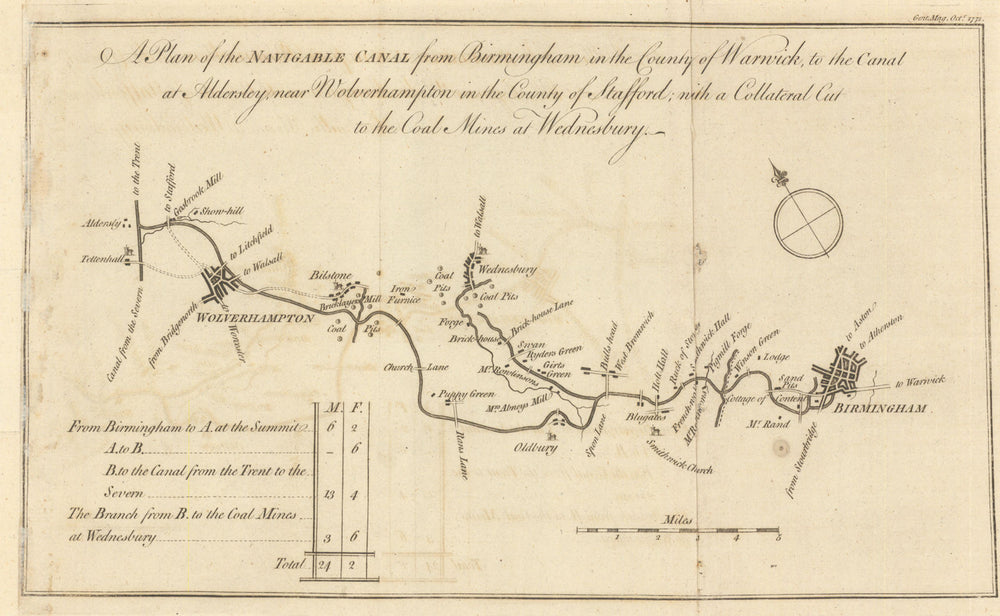 Gent. Mag. Octr. 1771.
A Plan of the NAVIGABLE CANAL from Birmingham in the County of Warwick, to the Canal
at Aldersley, near Wolverhampton in the County of Stafford; with a Collateral Cut
to the Coal Mines at Wednesbury.
to the Trent
to Stafford
Gosbrook Mill
Show-hill
Aldersly
Tettenhall
to Litchfield
to Walsall
Canal from the Severn
from Bridgenorth
WOLVERHAMPTON
to Worcester
Bilstone
Bricklayers Mill
Iron
Furnice
Coal Pits
Church Lane
Puppy Green
Rans Lane
Oldbury
to Walsall
Wednesbury
Coal
Pits
Coal Pits
Forge
Brick-house Lane
Brick-house
Swan
Ryders Green
Girts
Green
Mr. Rowlensons
Mrs. Abneys Mill
Spon Lane
Bulls-head
West Bromwich
Blugates
Holt Hall
Smithwick Church
Smethwick Hall
Pigmill Forge
Winson Green
Lodge
Cottage of Content
Sand
Pits
Mr. Rand
from Stourbridge
to Aston
to Atherston
to Warwick
BIRMINGHAM
M. F.
From Birmingham to A. at the Summit 6 2
A. to B. – 6
B. to the Canal from the Trent to the
Severn 13 4
The Branch from B. to the Coal Mines
at Wednesbury 3 6
Total 24 2
Miles
1 2 3 4 5